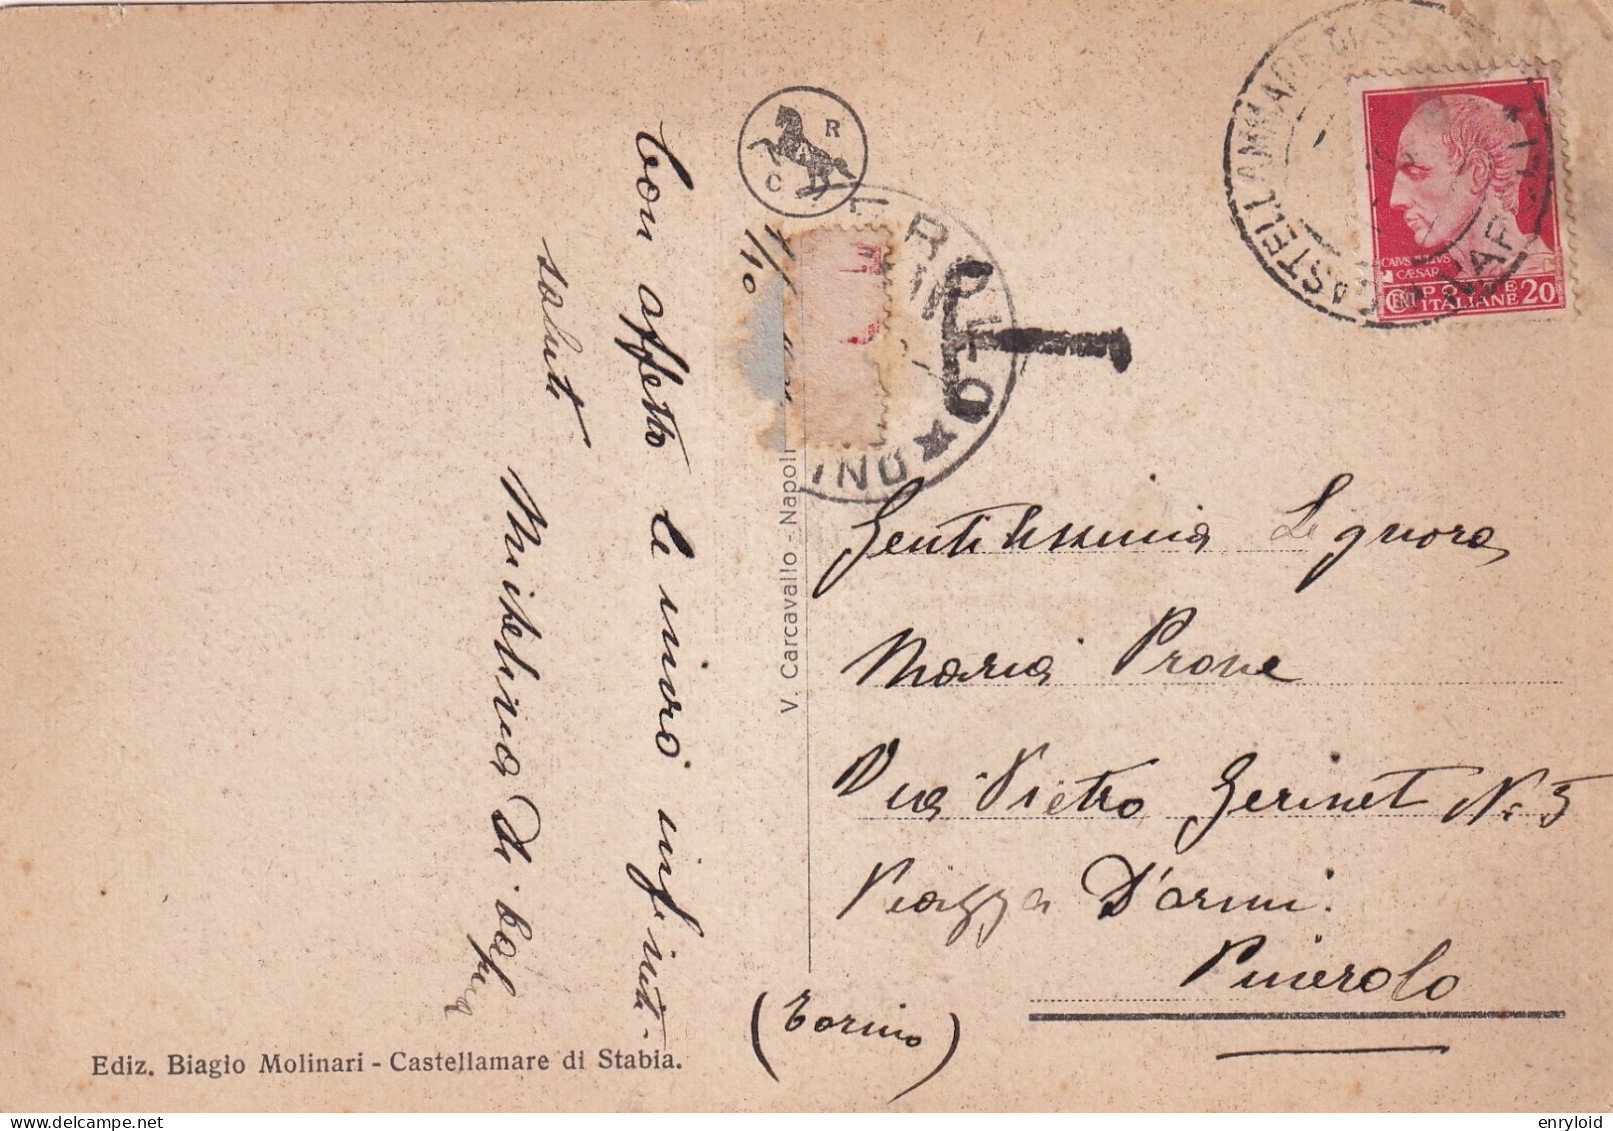 Con affetto le invio infiniti
saluti
Michelina Di Capua
Ediz. Biagio Molinari - Castellamare di Stabia.
V. Carcavallo - Napoli
R
C
1/10
T
CASTELLAMMARE DI
NAPOLI
CAIVS IVLIVS
CAESAR
POSTE
ITALIANE
CENT 20
Gentilissima Signora
Maria Prone
Via Pietro Gerinet N. 5
Piazza D'armi.
Pinerolo
(Torino)
enryloid